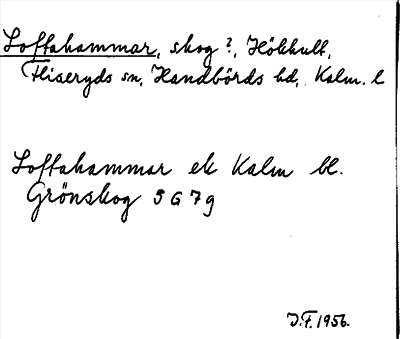 Loftahammar, skog?, Hökhult,
Fliseryds sn, Handbörds hd, Kalm. l
Loftahammar ek Kalm bl.
Grönskog 5G7g
J.F. 1956.